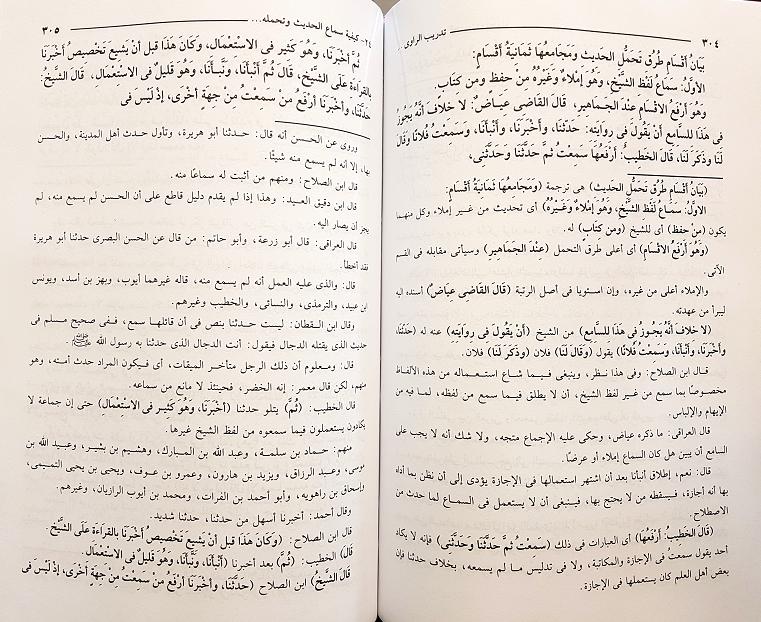 ٣٠٤
تدريب الراوى
بَيَانُ أقْسَامِ طُرُقِ تَحَمُّلِ الحَديث وَمَجَامعُهَا ثَمَانِيَةُ أقْسَامٍ:
الأوَّلُ: سَمَاعُ لَفْظِ الشَّيْخِ، وَهُوَ إمْلاءٌ وَغَيْرُهُ مِنْ حِفظٍ وَمن كتَابٍ.
وَهُوَ أرْفَعُ الأقسَامِ عنْدَ الجَمَاهِيرِ، قَالَ القَاضِى عيَاضٌ: لا خلافَ أنَّهُ يَجُوزُ
فِى هَذَا للسَّامِعِ أنْ يَقُولَ فى روَايَتِه: حَدّثَنَا، وَأخْبَرَنَا، وَأنْبَأنَا، وَسَمِعْتُ فُلانًا وَقَالَ
لَنَا وَذكَرَ لَنَا، قَالَ الخَطِيبُ: أرْفَعُهَا سَمِعْتُ ثمَّ حَدَّثَنَا وَحَدَّثَنِى،
(بَيَانُ أقْسَامِ طُرُقِ تَحَمُّلِ الحَديث) هى ترجمة (وَمَجَامِعُهَا ثَمَانِيَةُ أقْسَامٍ:
الأوَّلُ: سَمَاعُ لَفْظِ الشَّيْخِ، وَهُوَ إمْلاءٌ وَغَيْرُهُ) أى تحديث من غير إملاء وكل منهما
يكون (منْ حفظٍ) أى للشيخ (وَمن كتَابٍ) له.
(وَهُوَ أرْفَعُ الأقسَامِ) أى أعلى طرق التحمل (عنْدَ الجَمَاهِيرِ) وسيأتى مقابله فى القسم
الآتى.
والإملاء أعلى من غيره، وإن استويا فى أصل الرتبة (قَالَ القَاضِى عيَاضٌ) أسنده إليه
ليبرأ من عهدته.
(لا خلافَ أنَّهُ يَجُوزُ فى هَذَا للسَّامِعِ) من الشيخ (أنْ يَقُولَ فى روَايَتِه) عنه له (حَدّثَنَا،
وَأخْبَرَنَا، وَأنْبَأنَا، وَسَمِعْتُ فُلانًا) يقول (وَقَالَ لَنَا) فلان (وَذكَرَ لَنَا) فلان.
قال ابن الصلاح: وفى هذا نظر، وينبغى فيما شاع استعماله من هذه الألفاظ
مخصوصًا بما سمع من غير لفظ الشيخ، أن لا يطلق فيما سمع من لفظه، لما فيه من
الإيهام والإلباس.
قال العراقى: ما ذكره عياض، وحكى عليه الإجماع متجه، ولا شك أنه لا يجب على
السامع أن يبين هل كان السماع إملاء أو عرضًا.
قال: نعم، إطلاق أنبأنا بعد أن اشتهر استعمالها فى الإجازة يؤدى إلى أن نظن بما أداه
بها أنه إجازة، فيسقطه من لا يحتج بها، فينبغى أن لا يستعمل فى السماع لما حدث من
الاصطلاح.
(قَالَ الخَطِيبُ: أرْفَعُهَا) أى العبارات فى ذلك (سَمِعْتُ ثمَّ حَدَّثَنَا وَحَدَّثَنِى) فإنه لا يكاد
أحد يقول سمعتُ فى الإجازة والمكاتبة، ولا فى تدليس ما لم يسمعه، بخلاف حدثنا فإن
بعض أهل العلم كان يستعملها فى الإجازة.
٢٤- كيفية سماع الحديث وتحمله...
٣٠٥
ثُمَّ أخْبَرَنَا، وَهُوَ كَثيرٌ فى الاسْتعْمَالِ، وَكَانَ هَذَا قبل أنْ يَشيعَ تَخْصيصُ أخْبَرَنَا
بالقرَاءَة عَلَى الشَّيْخ، قَالَ ثُمَّ أنْبَأنَا، وَنَبَّأنَا، وَهُوَ قَليلٌ فى الاسْتعْمَالِ، قَالَ الشَّيْخُ:
حَدَّثَنَا، وَأخْبَرَنَا أرْفَعُ منْ سَمعْتُ منْ جهَةٍ أخْرَى، إذْ لَيْسَ فى
وروى عن الحسن أنه قال: حدثنا أبو هريرة، وتأول حدث أهل المدينة، والحسن
بها، إلا أنه لم يسمع منه شيئًا.
قال ابن الصلاح: ومنهم من أثبت له سماعًا منه.
قال ابن دقيق العيد: وهذا إذا لم يقدم دليل قاطع على أن الحسن لم يسمع منه، لم
يجز أن يصار إليه.
قال العراقى: قال أبو زرعة، وأبو حاتم: من قال عن الحسن البصرى حدثنا أبو هريرة
فقد أخطأ.
قال: والذى عليه العمل أنه لم يسمع منه، قاله غيرهما أيوب، وبهز بن أسد، ويونس
ابن عبيد، والترمذى، والنسائى، والخطيب وغيرهم.
وقال ابن القطان: ليست حدثنا بنص فى أن قائلها سمع، ففى صحيح مسلم فى
حديث الذى يقتله الدجال فيقول: أنت الدجال الذى حدثنا به رسول الله ﷺ.
قال: ومعلوم أن ذلك الرجل متأخر الميقات، أى فيكون المراد حدث أمته، وهو
منهم، لكن قال معمر: إنه الخضر، فحينئذ لا مانع من سماعه.
قال الخطيب: (ثُمَّ) يتلو حدثنا (أخْبَرَنَا، وَهُوَ كَثير فى الاسْتعْمَالِ) حتى إن جماعة لا
يكادون يستعملون فيما سمعوه من لفظ الشيخ غيرها.
منهم: حماد بن سلمة، وعبد الله بن المبارك، وهشيم بن بشير، وعبيد الله بن
موسى، وعبد الرزاق، ويزيد بن هارون، وعمرو بن عوف، ويحيى بن يحيى التميمى،
وإسحاق بن راهويه، وأبو أحمد بن الفرات، ومحمد بن أيوب الرازيان، وغيرهم.
وقال أحمد: أخبرنا أسهل من حدثنا، حدثنا شديد.
قال ابن الصلاح: (وَكَانَ هَذَا قبل أنْ يَشيعَ تَخْصيصُ أخْبَرَنَا بالقرَاءَة عَلَى الشَّيْخِ.
قَالَ) الخطيب: (ثُمَّ) بعد أخبرنا (أنْبَأنَا، وَنَبَّأنَا، وَهُوَ قَليلٌ فى الاسْتعْمَال.
قَالَ الشَّيْخُ) ابن الصلاح (حَدَّثَنَا، وَأخْبَرَنَا أرْفَعُ منْ سَمِعْتُ منْ جهَةٍ أخْرَى، إذْ لَيْسَ فى